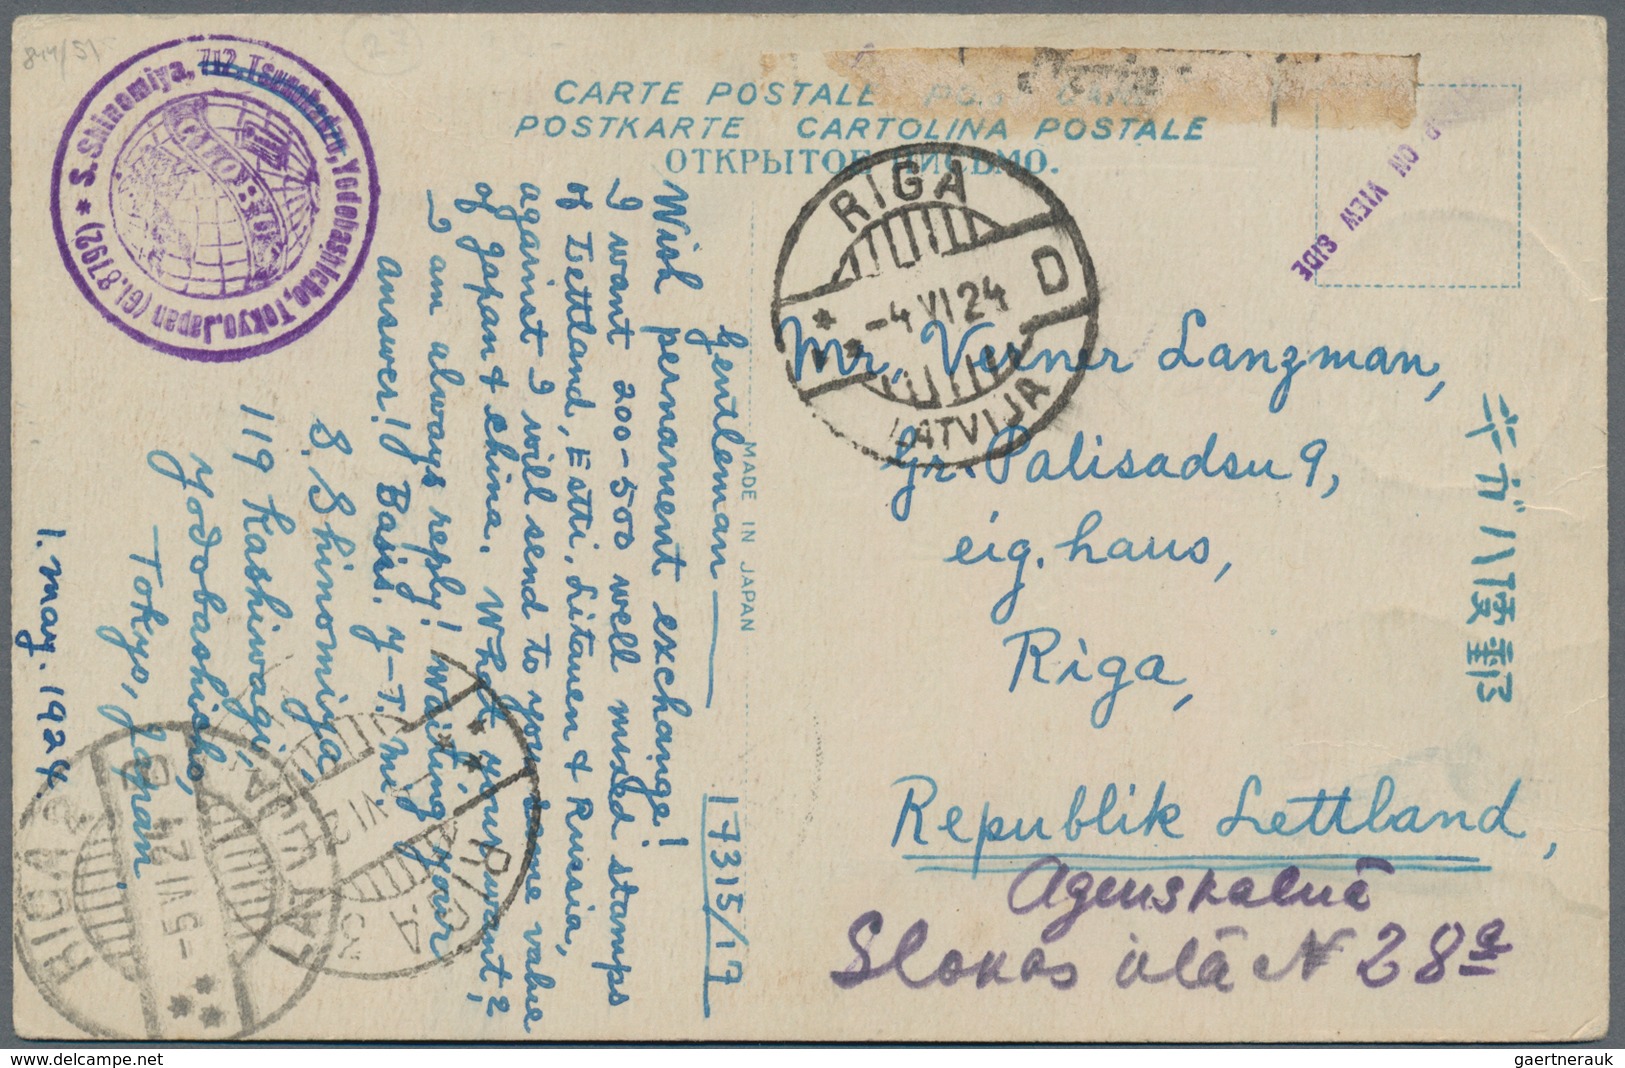 844/51
22
S. Shinomiya, 712, Tsunohadzu, Yodobashicho, Tokyo, Japan (Gl. 8792) *
GLOBE
CARTE POSTALE POST CARD
POSTKARTE CARTOLINA POSTALE
ОТКРЫТОЕ ПИСЬМО.
ON VIEW SIDE
MADE IN JAPAN
RIGA
D
-4 VI 24
LATVIJA
Gentleman —
Wish pernament exchange!
I want 200-500 well mixed stamps
of Lettland, Estti, Litauen & Russia,
against I will send to you same value
of Japan & China. What your want?
I am always reply! waiting your
answer! Basis. Y-T. Mi.
S. Shinomiya,
119 Kashiwagi,
Yodobashicho,
Tokyo, Japan
1. May. 1924
17315/17
Mr. Verner Lanzman,
Gr. Palisadsu 9,
eig. haus,
Riga,
Republik Lettland,
Agenskalnā
Slokas ielā № 28a
RIGA
-5 VI 24
LATVIJA
RIGA